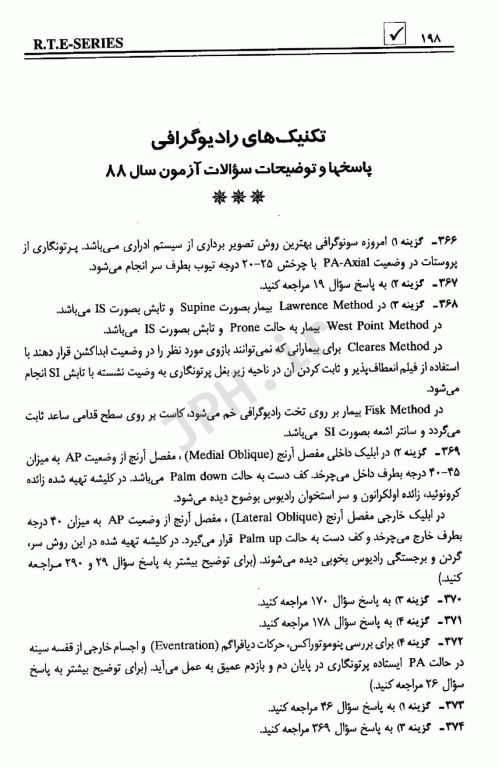 R.T.E-SERIES ۱۹۸
تکنیک‌های رادیوگرافی
پاسخها و توضیحات سؤالات آزمون سال ۸۸
***
۳۶۶ـ گزینه ۱) امروزه سونوگرافی بهترین روش تصویر برداری از سیستم ادراری می‌باشد. پرتونگاری از
پروستات در وضعیت PA-Axial با چرخش ۲۵-۲۰ درجه تیوب بطرف سر انجام می‌شود.
۳۶۷ـ گزینه ۲) به پاسخ سؤال ۱۹ مراجعه کنید.
۳۶۸ـ گزینه ۳) در Lawrence Method بیمار بصورت Supine و تابش بصورت IS می‌باشد.
در West Point Method بیمار به حالت Prone و تابش بصورت IS می‌باشد.
در Cleares Method برای بیمارانی که نمی‌توانند بازوی مورد نظر را در وضعیت ابداکشن قرار دهند با
استفاده از فیلم انعطاف‌پذیر و ثابت کردن آن در ناحیه زیر بغل پرتونگاری به وضیت نشسته با تابش SI انجام
می‌شود.
در Fisk Method بیمار بر روی تخت رادیوگرافی خم می‌شود، کاست بر روی سطح قدامی ساعد ثابت
می‌گردد و سانتر اشعه بصورت SI می‌باشد.
۳۶۹ـ گزینه ۲) در ابلیک داخلی مفصل آرنج (Medial Oblique) ، مفصل آرنج از وضعیت AP به میزان
۴۵-۴۰ درجه بطرف داخل می‌چرخد. کف دست به حالت Palm down می‌باشد. در کلیشه تهیه شده زائده
کرونوئید، زائده اولکرانون و سر استخوان رادیوس بوضوح دیده می‌شود.
در ابلیک خارجی مفصل آرنج (Lateral Oblique) ، مفصل آرنج از وضعیت AP به میزان ۴۰ درجه
بطرف خارج می‌چرخد و کف دست به حالت Palm up قرار می‌گیرد. در کلیشه تهیه شده در این روش سر،
گردن و برجستگی رادیوس بخوبی دیده می‌شوند. (برای توضیح بیشتر به پاسخ سؤال ۲۹ و ۲۹۰ مراجعه
کنید.)
۳۷۰ـ گزینه ۳) به پاسخ سؤال ۱۷۰ مراجعه کنید.
۳۷۱ـ گزینه ۴) به پاسخ سؤال ۱۷۸ مراجعه کنید.
۳۷۲ـ گزینه ۴) برای بررسی پنوموتوراکس، حرکات دیافراگم (Eventration) و اجسام خارجی از قفسه سینه
در حالت PA ایستاده پرتونگاری در پایان دم و بازدم عمیق به عمل می‌آید. (برای توضیح بیشتر به پاسخ
سؤال ۲۶ مراجعه کنید.)
۳۷۳ـ گزینه ۱) به پاسخ سؤال ۴۶ مراجعه کنید.
۳۷۴ـ گزینه ۳) به پاسخ سؤال ۳۶۹ مراجعه کنید.
JPH.ir